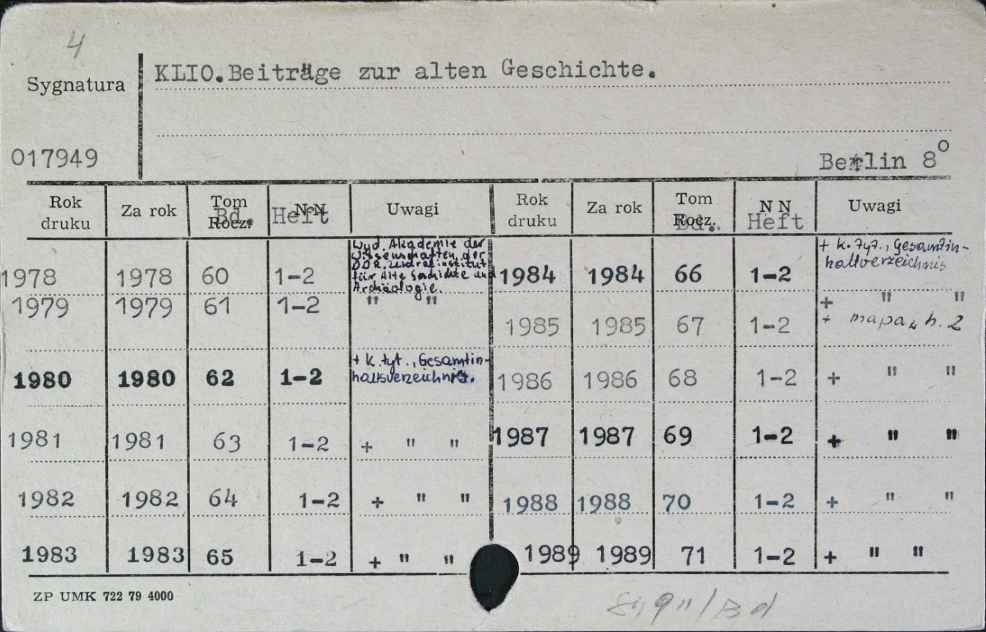 4
Sygnatura
KLIO.Beiträge zur alten Geschichte.
017949
Berlin 8º
Rok druku Za rok Tom Rocz. Bd. NN Heft Uwagi Rok druku Za rok Tom Rocz. Bd. NN Heft Uwagi
1978 1978 60 1-2 Wyd. Akademie der Wissenschaften der DDR. Zentralinstitut für Alte Geschichte und Archäologie. 1984 1984 66 1-2 + k. tyt., Gesamtinhaltverzeichnis
1979 1979 61 1-2 " " 1985 1985 67 1-2 + " " + mapa, h. 2
1980 1980 62 1-2 + k. tyt., Gesamtinhaltsverzeichnis. 1986 1986 68 1-2 + " "
1981 1981 63 1-2 + " " 1987 1987 69 1-2 + " "
1982 1982 64 1-2 + " " 1988 1988 70 1-2 + " "
1983 1983 65 1-2 + " " 1989 1989 71 1-2 + " "
ZP UMK 722 79 4000